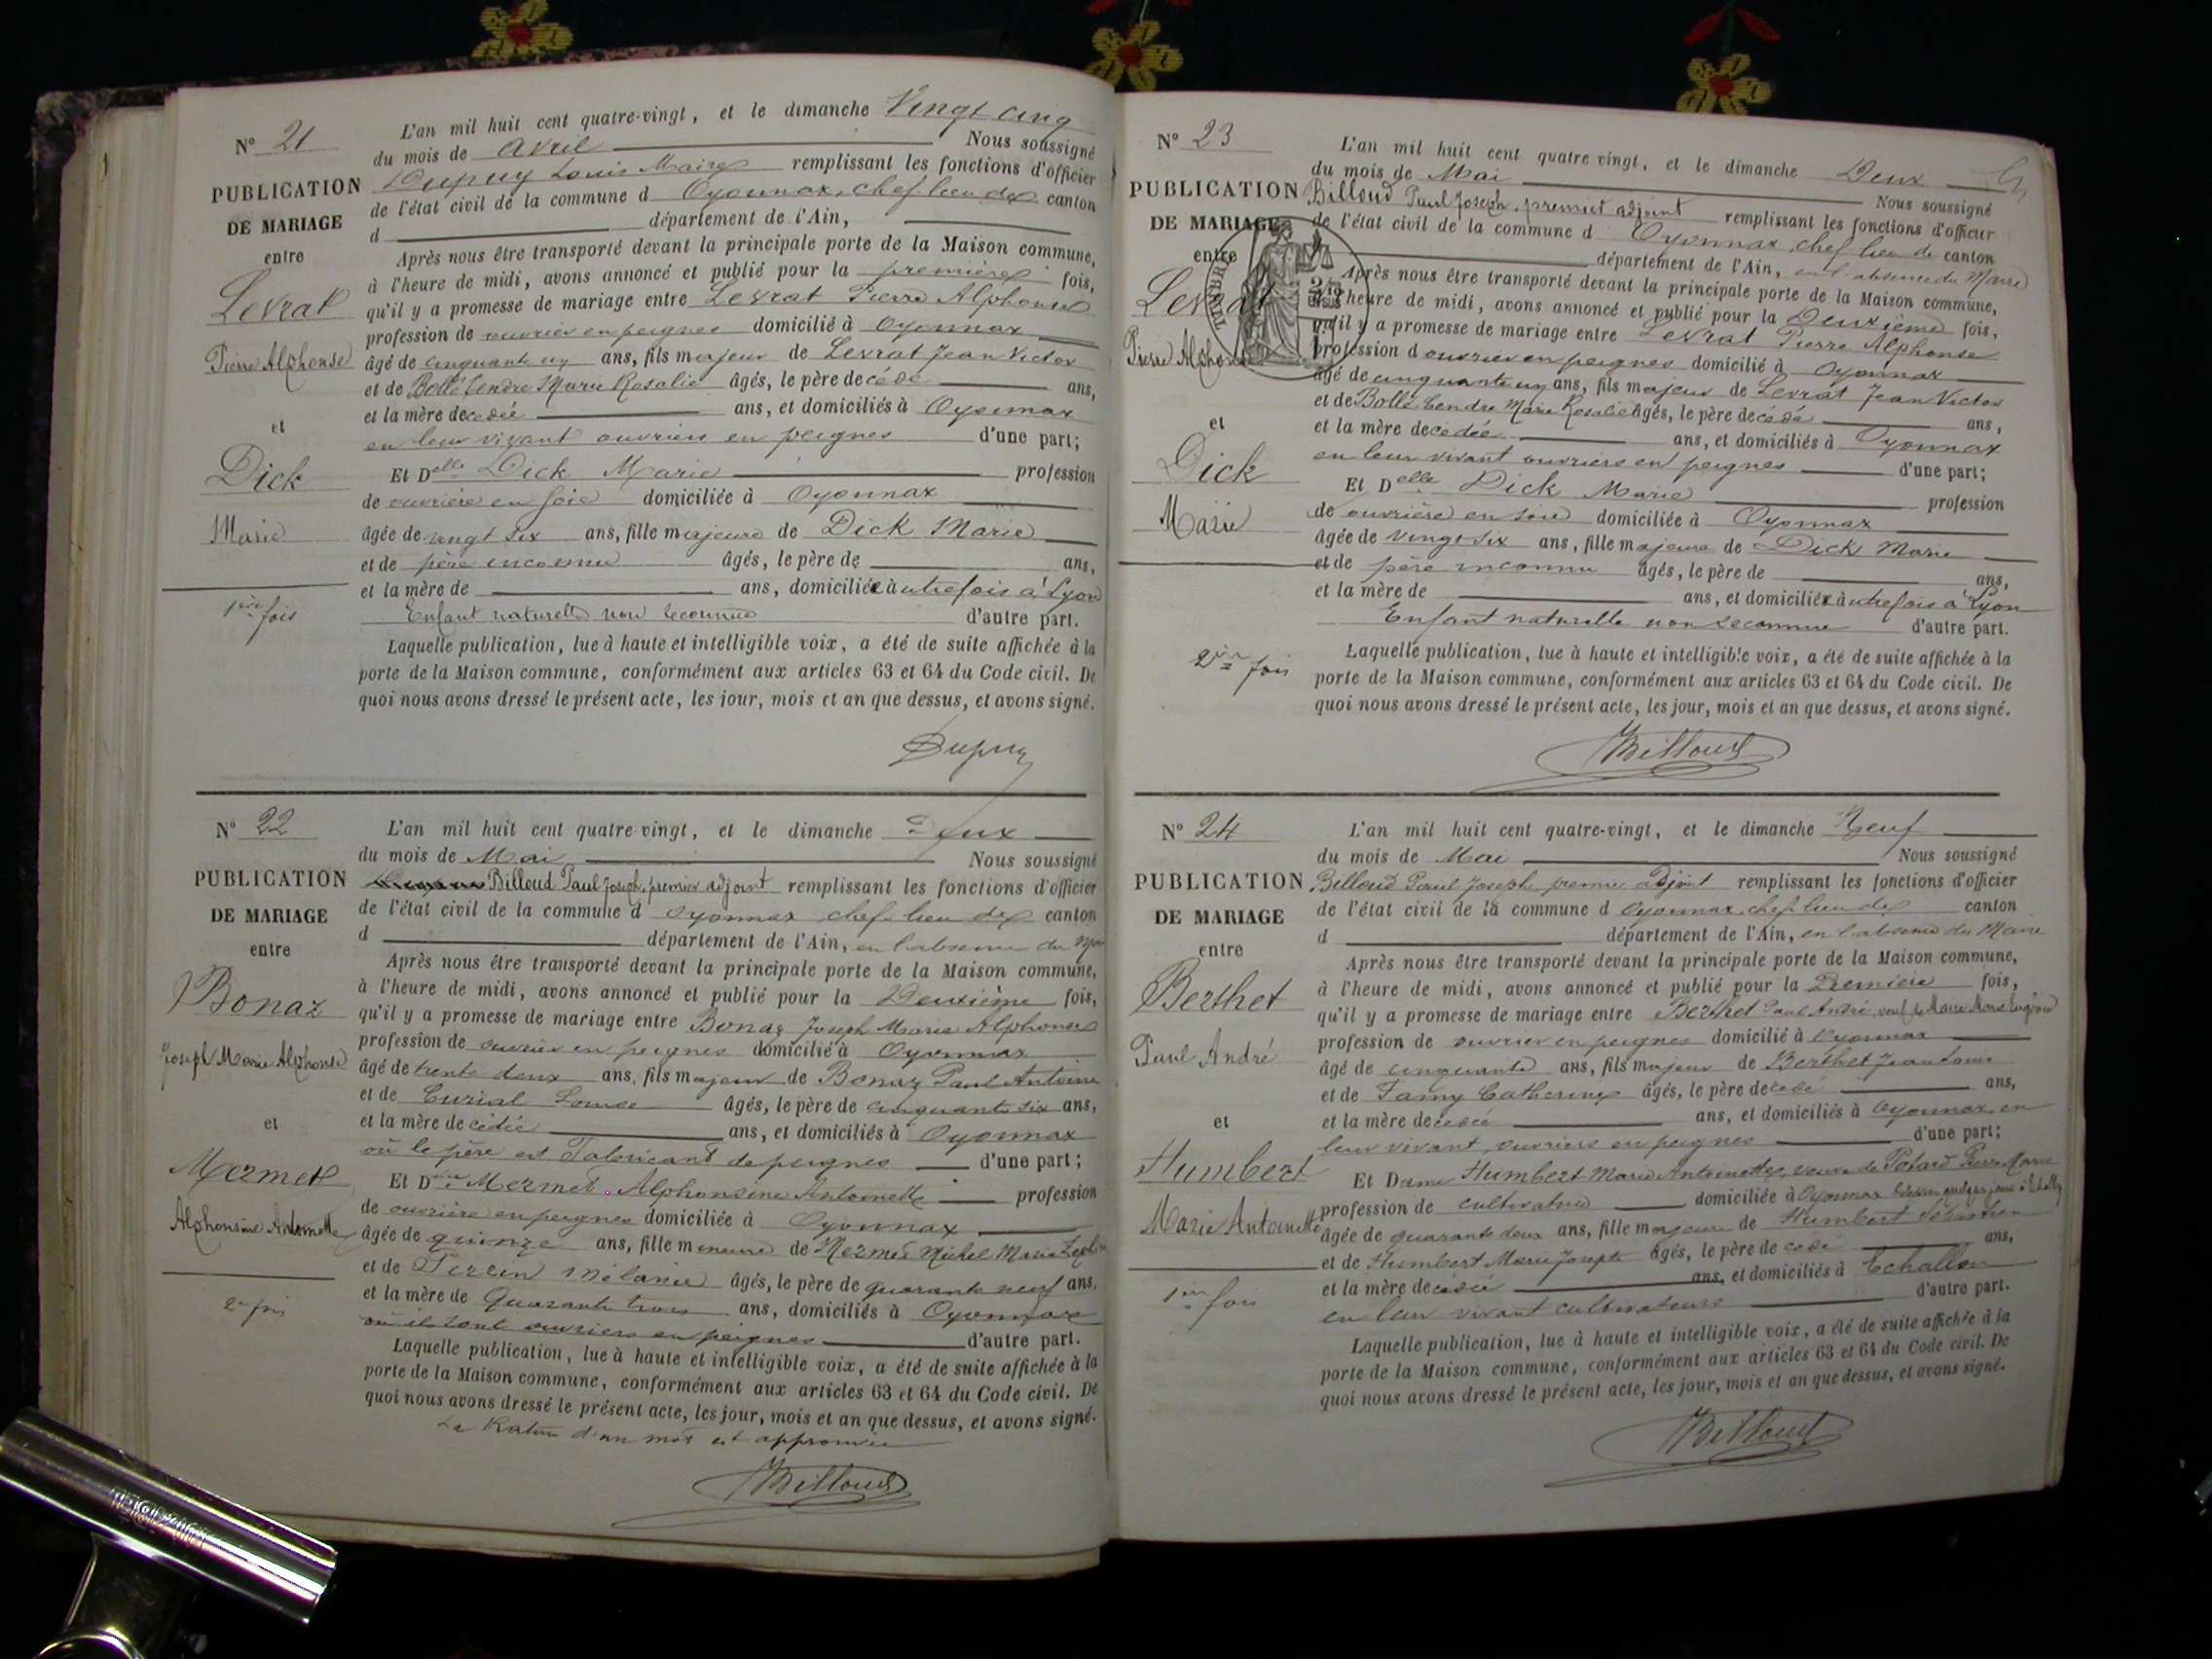 N° 21
PUBLICATION
DE MARIAGE
entre
Levrat
Pierre Alphonse
et
Dick
Marie
1ère fois
L'an mil huit cent quatre-vingt, et le dimanche Vingt cinq
du mois de Avril Nous soussigné
Dupuy Louis Maire remplissant les fonctions d'officier
de l'état civil de la commune d Oyonnax, chef lieu de canton
d département de l'Ain,
Après nous être transporté devant la principale porte de la Maison commune,
à l'heure de midi, avons annoncé et publié pour la première fois,
qu'il y a promesse de mariage entre Levrat Pierre Alphonse
profession de ouvrier en peignes domicilié à Oyonnax
âgé de cinquante un ans, fils majeur de Levrat Jean Victor
et de Bollé Cendre Marie Rosalie âgés, le père décédé ans,
et la mère décédée ans, et domiciliés à Oyonnax
en leur vivant ouvriers en peignes d'une part;
Et Delle Dick Marie profession
de ouvrière en soie domiciliée à Oyonnax
âgée de vingt six ans, fille majeure de Dick Marie
et de père inconnu âgés, le père de ans,
et la mère de ans, domiciliée autrefois à Lyon
Enfant naturelle non reconnue d'autre part.
Laquelle publication, lue à haute et intelligible voix, a été de suite affichée à la
porte de la Maison commune, conformément aux articles 63 et 64 du Code civil. De
quoi nous avons dressé le présent acte, les jour, mois et an que dessus, et avons signé.
Dupuy
N° 22
PUBLICATION
DE MARIAGE
entre
Bonaz
Joseph Marie Alphonse
et
Mermet
Alphonsine Antoinette
2e fois
L'an mil huit cent quatre-vingt, et le dimanche deux
du mois de Mai Nous soussigné
Billoud Paul Joseph, premier adjoint remplissant les fonctions d'officier
de l'état civil de la commune d Oyonnax chef-lieu de canton
d département de l'Ain, en l'absence du
Après nous être transporté devant la principale porte de la Maison commune,
à l'heure de midi, avons annoncé et publié pour la Deuxième fois,
qu'il y a promesse de mariage entre Bonaz Joseph Marie Alphonse
profession de ouvrier en peignes domicilié à Oyonnax
âgé de trente deux ans, fils majeur de Bonaz Paul Antoine
et de Curial Louise âgés, le père de cinquante six ans,
et la mère décédée ans, et domiciliés à Oyonnax
où le père est Fabricant de peignes d'une part;
Et Delle Mermet Alphonsine Antoinette profession
de ouvrière en peignes domiciliée à Oyonnax
âgée de quinze ans, fille mineure de Mermet Michel Marie
et de Percin Mélanie âgés, le père de quarante neuf ans,
et la mère de Quarante trois ans, domiciliés à Oyonnax
où ils sont ouvriers en peignes d'autre part.
Laquelle publication, lue à haute et intelligible voix, a été de suite affichée à la
porte de la Maison commune, conformément aux articles 63 et 64 du Code civil. De
quoi nous avons dressé le présent acte, les jour, mois et an que dessus, et avons signé.
La Rature d'un mot est approuvée
Billoud
N° 23
PUBLICATION
DE MARIAGE
entre
Levrat
Pierre Alphonse
et
Dick
Marie
2ème fois
L'an mil huit cent quatre vingt, et le dimanche Deux
du mois de Mai Nous soussigné
Billoud Paul Joseph, premier adjoint remplissant les fonctions d'officier
de l'état civil de la commune d Oyonnax chef lieu de canton
département de l'Ain, en l'absence du Maire
Après nous être transporté devant la principale porte de la Maison commune,
à l'heure de midi, avons annoncé et publié pour la Deuxième fois,
qu'il y a promesse de mariage entre Levrat Pierre Alphonse
profession d ouvrier en peignes domicilié à Oyonnax
âgé de cinquante un ans, fils majeur de Levrat Jean Victor
et de Bollé Cendre Marie Rosalie âgés, le père décédé ans,
et la mère décédée ans, et domiciliés à Oyonnax
en leur vivant ouvriers en peignes d'une part;
Et Delle Dick Marie profession
de ouvrière en soie domiciliée à Oyonnax
âgée de vingt six ans, fille majeure de Dick Marie
et de père inconnu âgés, le père de ans,
et la mère de ans, et domiciliée autrefois à Lyon
Enfant naturelle non reconnue d'autre part.
Laquelle publication, lue à haute et intelligible voix, a été de suite affichée à la
porte de la Maison commune, conformément aux articles 63 et 64 du Code civil. De
quoi nous avons dressé le présent acte, les jour, mois et an que dessus, et avons signé.
Billoud
N° 24
PUBLICATION
DE MARIAGE
entre
Berthet
Paul André
et
Humbert
Marie Antoinette
1ère fois
L'an mil huit cent quatre-vingt, et le dimanche Neuf
du mois de Mai Nous soussigné
Billoud Paul Joseph premier adjoint remplissant les fonctions d'officier
de l'état civil de la commune d Oyonnax, chef lieu de canton
d département de l'Ain, en l'absence du Maire
Après nous être transporté devant la principale porte de la Maison commune,
à l'heure de midi, avons annoncé et publié pour la Première fois,
qu'il y a promesse de mariage entre Berthet Paul André, veuf de Marie
profession de ouvrier en peignes domicilié à Oyonnax
âgé de cinquante ans, fils majeur de Berthet Jean Louis
et de Famy Catherine âgés, le père décédé ans,
et la mère décédée ans, et domiciliés à Oyonnax en
leur vivant ouvriers en peignes d'une part;
Et Dame Humbert Marie Antoinette, veuve de Potard Pierre Marie
profession de cultivatrice domiciliée à Oyonnax
âgée de quarante deux ans, fille majeure de Humbert Sébastien
et de Humbert Marie Josephte âgés, le père décédé ans,
et la mère décédée ans, et domiciliés à Echallon
en leur vivant cultivateurs d'autre part.
Laquelle publication, lue à haute et intelligible voix, a été de suite affichée à la
porte de la Maison commune, conformément aux articles 63 et 64 du Code civil. De
quoi nous avons dressé le présent acte, les jour, mois et an que dessus, et avons signé.
Billoud